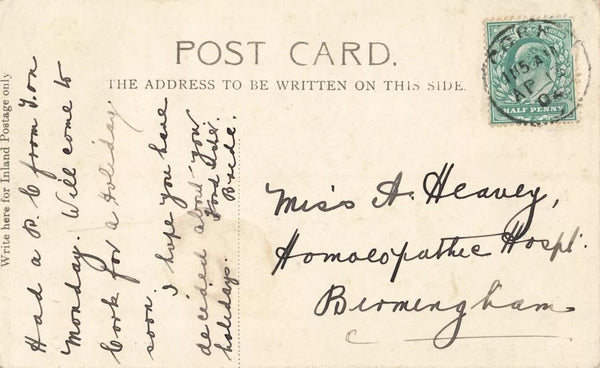 POST CARD.
THE ADDRESS TO BE WRITTEN ON THIS SIDE.
Write here for Inland Postage only
Had a P. C from J. on
Monday. Will come to
Cork for a Holiday
soon. I hope you have
decided about you
holidays.
Fond love.
Bride.
Miss A. Heavey,
Homoeopathic Hospl.
Birmingham
CORK
11 15 AM
AP
04
HALF PENNY